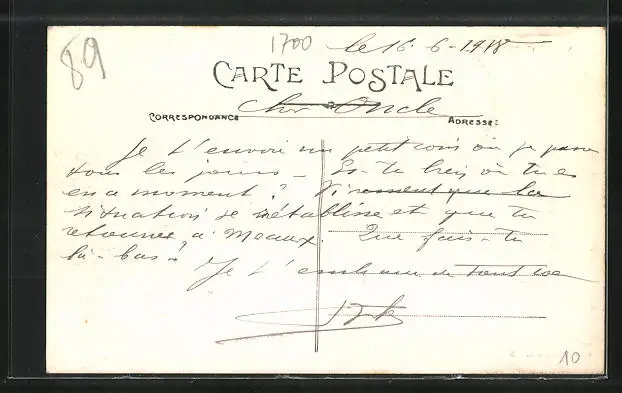 89
1700
le 16-6-1918
CARTE POSTALE
Cher Oncle
CORRESPONDANCE
ADRESSE:
Je t'envoie un petit coin où je passe
tous les jours - Es-tu bien où tu es
en ce moment? Vivement que la
situation se rétablisse et que tu
retournes à Meaux. Que fais-tu
là-bas?
Je t'embrasse de tout
10